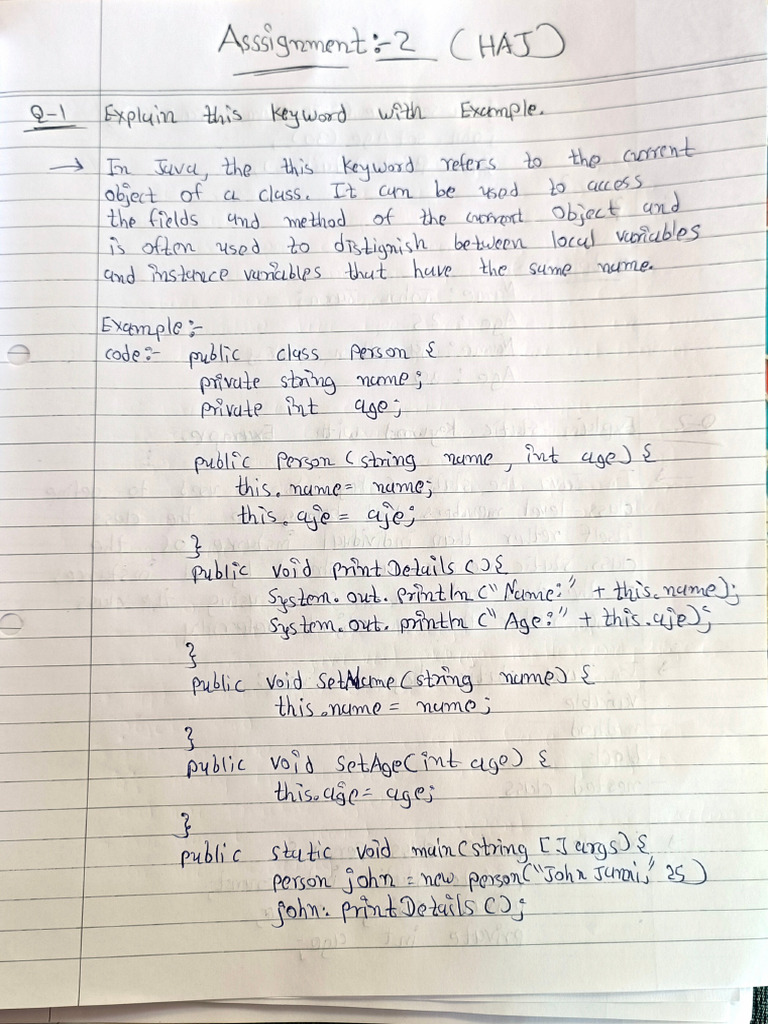 Asssignment:-2 (HAJ)
Q-1 Explain this keyword with Example.
→ In Java, the this keyword refers to the current
object of a class. It can be used to access
the fields and method of the current object and
is often used to distignish between local variables
and instance variables that have the same name.
Example:-
code:- public class person {
private string name;
private int age;
public person (string name, int age) {
this.name= name;
this.aje = aje;
}
public void printDetails () {
System.out.println ("Name:" + this.name);
System.out.println ("Age:" + this.aje);
}
public void setName (string name) {
this.name = name;
}
public void setAge (int age) {
this.age = age;
}
public static void main (string [] args) {
person john = new person ("John 25)
john. printDetails ();